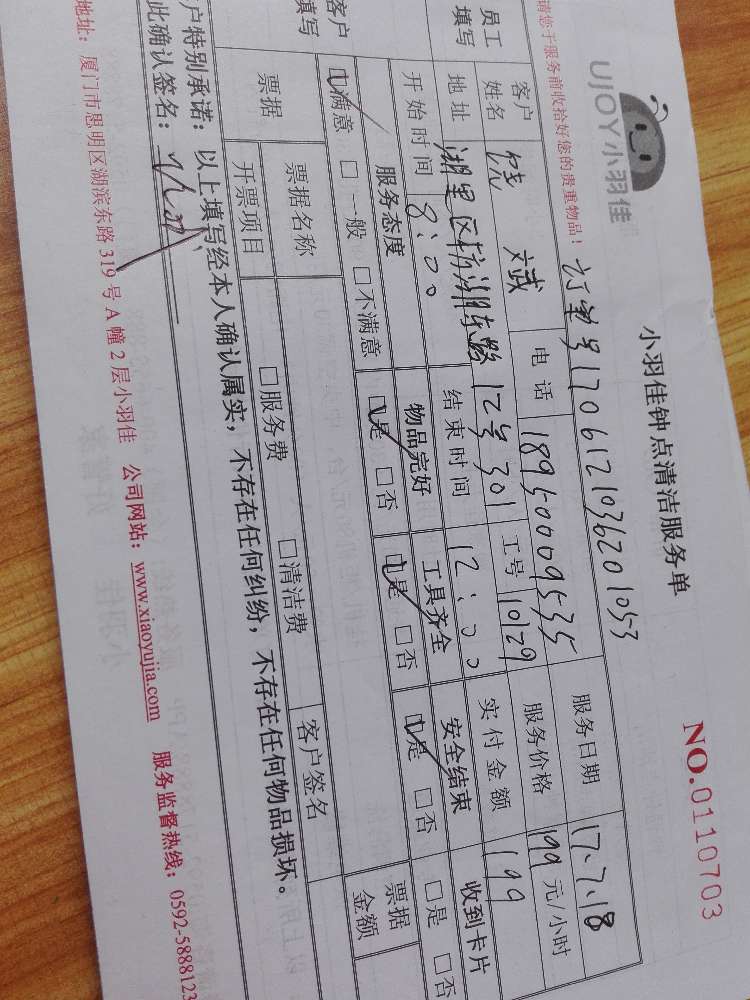 UJOY小羽佳
小羽佳钟点清洁服务单
NO.0110703
请您于服务前收拾好您的贵重物品！
订单号1706121036201053
员工填写
客户姓名 饶斌 电话 18950009535 服务日期 17.7.18
地址 湖里区枋湖东路12号301 工号 10129 服务价格 199元/小时
开始时间 8:00 结束时间 12:00 实付金额 199
客户填写
服务态度 物品完好 工具齐全 安全结束 收到卡片
☑满意 □一般 □不满意 ☑是 □否 ☑是 □否 ☑是 □否 □是 □否
票据 票据名称 客户签名 票据金额
开票项目 □服务费 □清洁费
客户特别承诺：以上填写经本人确认属实，不存在任何纠纷，不存在任何物品损坏。
此确认签名：
地址：厦门市思明区湖滨东路319号A幢2层小羽佳 公司网站：www.xiaoyujia.com 服务监督热线：0592-5888123